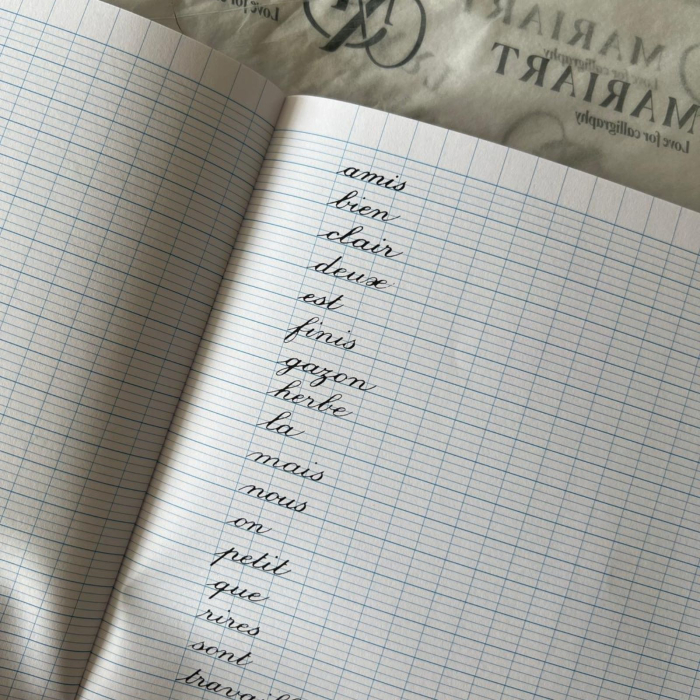 MARIART
Love for calligraphy
MARIART
Love for calligraphy
Love for
amis
bien
clair
deux
est
finis
gazon
herbe
la
mais
nous
on
petit
que
rires
sont